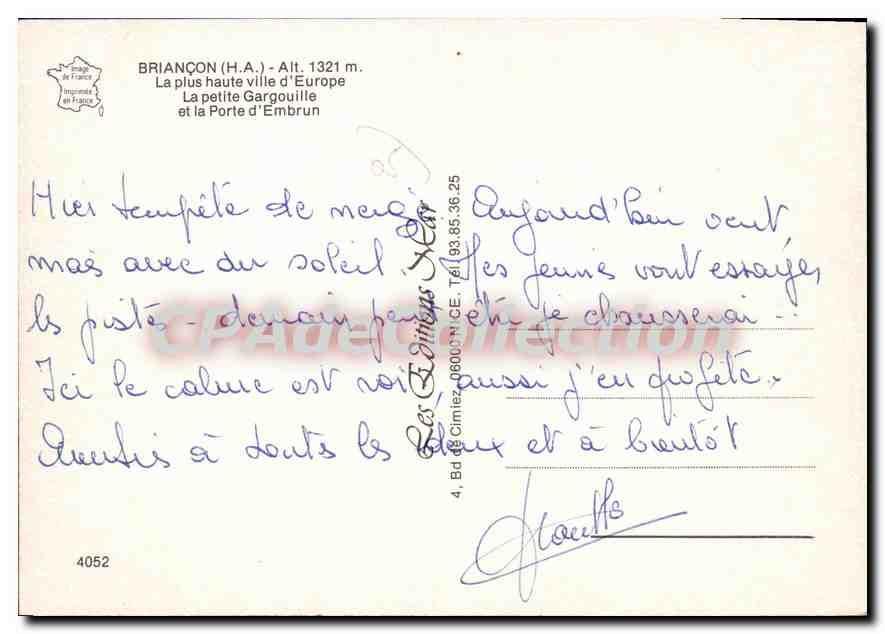 Image
de France
Imprimée
en France
BRIANÇON (H.A.) - Alt. 1321 m.
La plus haute ville d'Europe
La petite Gargouille
et la Porte d'Embrun
Hier tempête de neige Aujourd'hui vent
mais avec du soleil. Les jeunes vont essayer
les pistes - demain peut être je chausserai ...
Ici le calme est roi, aussi j'en profite.
Amitiés à toutes les deux et à bientôt
Les Editions Mar
4, Bd de Cimiez, 06000 NICE. Tél. 93.85.36.25
CPAdeCollection
4052